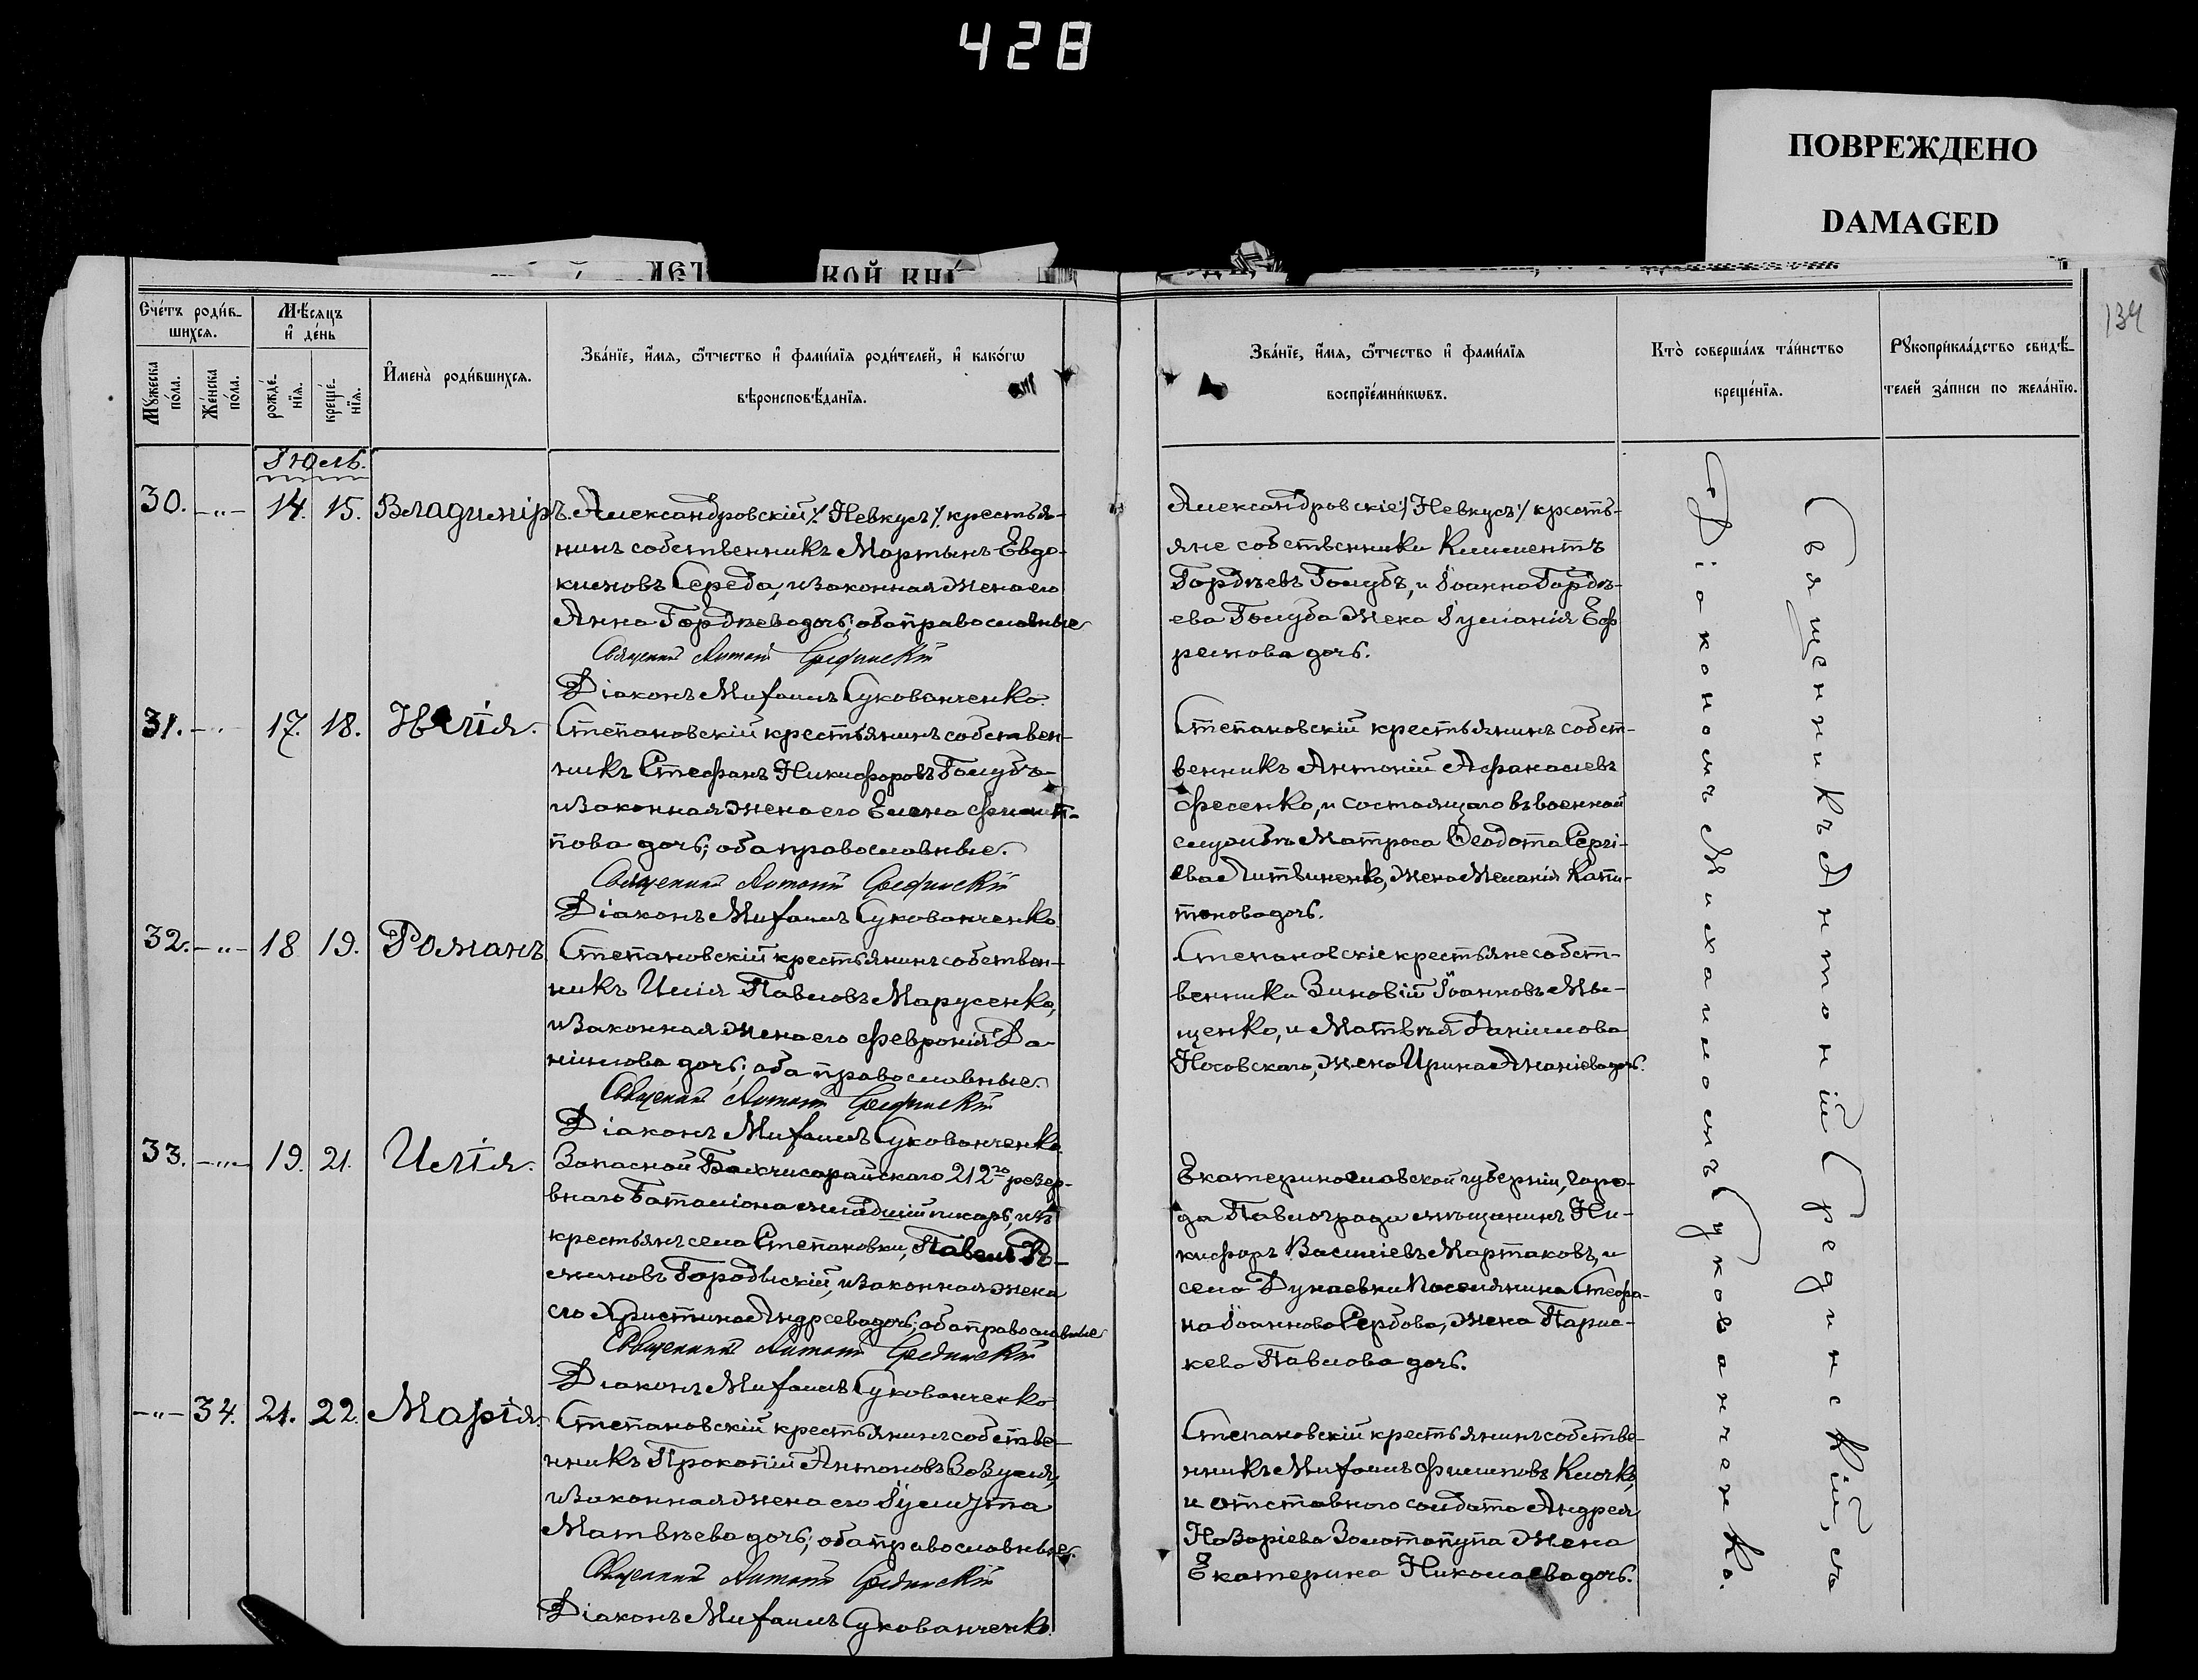 428
ПОВРЕЖДЕНО
DAMAGED
134
Сче́тъ роди́в-
шихсѧ.
Мѣ́сяцъ
и҆ де́нь
Мꙋ́жеска
по́ла.
Же́нска
по́ла.
рожде́-
нїѧ.
креще́-
нїѧ.
И҆мена̀ роди́вшихсѧ.
Зва́нїе, и҆́мѧ, ѻ҆́тчество и҆ фами́лїѧ роди́телей, и҆ како́гѡ
вѣроисповѣ́данїѧ.
Зва́нїе, и҆́мѧ, ѻ҆́тчество и҆ фами́лїѧ
воспрїе́мникѡвъ.
Кто̀ соверша́лъ та́инство
креще́нїѧ.
Рꙋкоприкла́дство свидѣ́-
телей за́писи по жела́нїю.
Іюль.
30. -"- 14. 15. Владиміръ.
Александровскій /: Невкусъ :/ крестья-
нинъ собственникъ Мартынъ Евдо-
кимовъ Середа, и законная жена его
Анна Гордѣева дочь; оба православные
Священникъ Антоній Срединскій
Діаконъ Михаилъ Сукованченко.
Александровскіе /: Невкусъ :/ кресть-
яне собственники Климентъ
Гордѣевъ Голубъ, и Іоанна Гордѣ-
ева Голуба жена Іуліанія Еф
ремова дочь.
31. -"- 17. 18. Илія.
Степановскій крестьянинъ собствен-
никъ Стефанъ Никифоровъ Голубъ
и законная жена его Елена Филип-
пова дочь; оба православные.
Священникъ Антоній Срединскій
Діаконъ Михаилъ Сукованченко
Степановскій крестьянинъ собст-
венникъ Антоній Афанасіевъ
Фесенко, и состоящаго въ военной
службѣ матроса Ѳеодота Сергі-
ева Литвиненко, жена Меланія Капи-
тонова дочь.
32. -"- 18 19. Романъ
Степановскій крестьянинъ собствен-
никъ Илія Павловъ Марусенко,
и законная жена его Февронія Да-
ніилова дочь; оба православные.
Священникъ Антоній Срединскій
Діаконъ Михаилъ Сукованченко.
Степановскіе крестьяне собст-
венники Зиновій Іоанновъ Мы-
щенко, и Матвѣя Даніилова
Носовскаго, жена Ирина Ананіева дочь.
33. -"- 19. 21. Илія.
Запасной Бахчисарайскаго 212го резер-
внаго баталіона младшій писарь, изъ
крестьянъ села Степановки, Павелъ Ро-
мановъ Городыскій, и законная жена
его Христина Андреева дочь; оба православные
Священникъ Антоній Срединскій
Діаконъ Михаилъ Сукованченко.
Екатеринославской губерніи, горо-
да Павлограда мѣщанинъ Ни-
кифоръ Василіевъ Мартаковъ, и
села Дунаевки поселянина Стефа-
на Іоаннова Сербова, жена Парас-
кева Павлова дочь.
-"- 34. 21. 22. Марія.
Степановскій крестьянинъ собстве-
нникъ Прокопій Антоновъ Зозуля,
и законная жена его Іулитта
Матвѣева дочь; оба православные.
Священникъ Антоній Срединскій
Діаконъ Михаилъ Сукованченко.
Степановскій крестьянинъ собстве-
нникъ Михаилъ Филиповъ Клочко,
и отставного солдата Андрея
Назаріева Золотопупа жена
Екатерина Николаева дочь.
Священникъ Антоній Срединскій, съ
Діакономъ Михаиломъ Сукованченко.